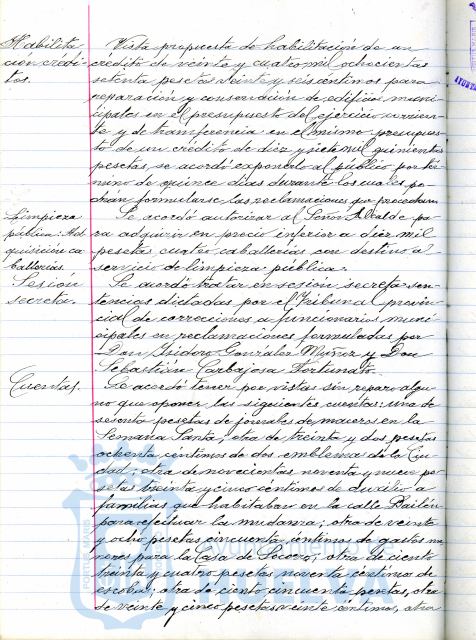 Habilita
ción crédi-
tos.
Vista propuesta de habilitación de un
crédito de veinte y cuatro mil ochocientas
setenta pesetas veinte y seis céntimos para
reparación y conservación de edificios muni-
cipales en el presupuesto del ejercicio corrien-
te y de transferencia en el mismo presupues-
to de un crédito de diez y siete mil quinientas
pesetas, se acordó exponerlo al público por tér-
mino de quince días durante los cuales po-
drán formularse las reclamaciones que procedan
Limpieza
pública: Ad
quisición ca
ballerías.
Se acordó autorizar al Señor Alcalde pa-
ra adquirir en precio inferior a diez mil
pesetas cuatro caballerías con destino al
servicio de limpieza pública.
Sesión
secreta.
Se acordó tratar en sesión secreta sen-
tencias dictadas por el Tribunal provin-
cial de correcciones a funcionarios muni-
cipales en reclamaciones formuladas por
Don Isidoro Gonzalez Muñoz y Don
Sebastián Carbajosa Fortunato.
Cuentas.
Se acordó tener por vistas sin reparo algu-
no que oponer, las siguientes cuentas: una de
sesenta pesetas de jornales de maceros en la
Semana Santa; otra de treinta y dos pesetas
ochenta céntimos de dos emblema de la Ciu-
dad; otra de novecientas noventa y nueve pe-
setas treinta y cinco céntimos de auxilio a
familias que habitaban en la calle Bailén
para efectuar la mudanza; otra de veinte
y ocho pesetas cincuenta céntimos de gastos me
nores para la Casa de Socorro; otra de ciento
treinta y cuatro pesetas noventa céntimos de
escobas; otra de ciento cincuenta pesetas, otra
de veinte y cinco pesetas veinte céntimos, otra